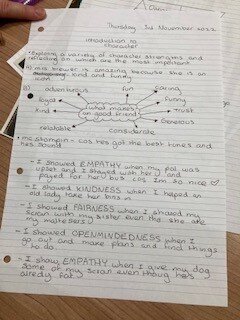 Thursday 3rd November 2022
Introduction to
Character
- exploring a variety of character strengths and
reflecting on which are the most important
1) miss brewer is amazing because she is an
kind and funny
2) adventurous fun caring
loyal funny
kind what makes an good friend Trust
Generous
reliable considerate
mc stompin - cos hes got the best tunes and
hes sound
- I showed EMPATHY when my pal was
upset and I stayed with her and
payed for her bus cos im so nice ♡
- I showed KINDNESS when I helped an
old lady take her bins in
- I showed FAIRNESS when I shared my
scran with my sister even tho she ate
my maltesers
- I showed OPENMINDEDNESS when I
go out and make plans and find things
to do.
- I show EMPATHY when I give my dog
some of my scran even though he's
alredy eat